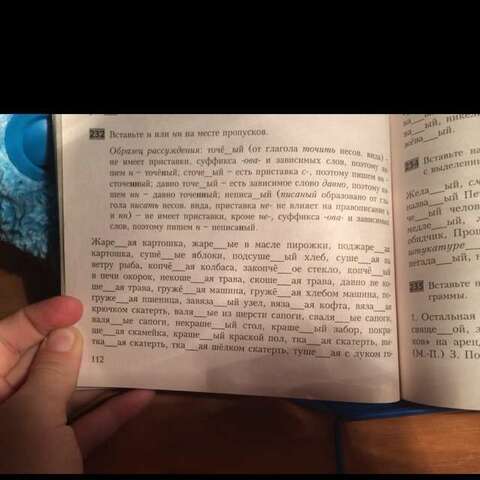 232 Вставьте н или нн на месте пропусков.
Образец рассуждения: точё__ый (от глагола точить несов. вида) -
не имеет приставки, суффикса -ова- и зависимых слов, поэтому
н – точёный; сточе__ый – есть приставка с-, поэтому пишем нн –
сточенный; давно точе__ый – есть зависимое слово давно, поэтому
ем нн – давно точенный; неписа__ый (писаный образовано от гла
гола писать несов. вида, приставка не- не влияет на правописание
и нн) – не имеет приставки, кроме не-, суффикса -ова- и зависимых
слов, поэтому пишем н – неписаный.
Жаре__ая картошка, жаре__ые в масле пирожки, поджаре__ая
картошка, сушё__ые яблоки, подсуше__ый хлеб, суше__ая на
ветру рыба, копчё__ая колбаса, закопчё__ое стекло, копчё__ый
в печи окорок, некоше__ая трава, скоше__ая трава, давно не ко-
ше__ая трава, гружё__ая машина, гружё__ая хлебом машина, по-
груже__ая пшеница, завяза__ый узел, вяза__ая кофта, вяза__ая
крючком скатерть, валя__ые из шерсти сапоги, сваля__ые сапоги,
валя__ые сапоги, некраше__ый стол, краше__ый забор, покра-
ше__ая скамейка, краше__ый краской пол, тка__ая скатерть, вы-
тка__ая скатерть, тка__ая шёлком скатерть, туше__ая с луком го-
112
ва__
ва__ый, никел
воёва__ый.
234 Вставьте на
с выделенн
Жела__ый, с
назва__ый Пе
че__ый чело
медле__ый,
обидчик. Про
штукатуре__
негада__ый, н
235 Вставьте
граммы.
1. Остальная
сваще__ой, з
ков» на арен
(М.-П.) 3. По